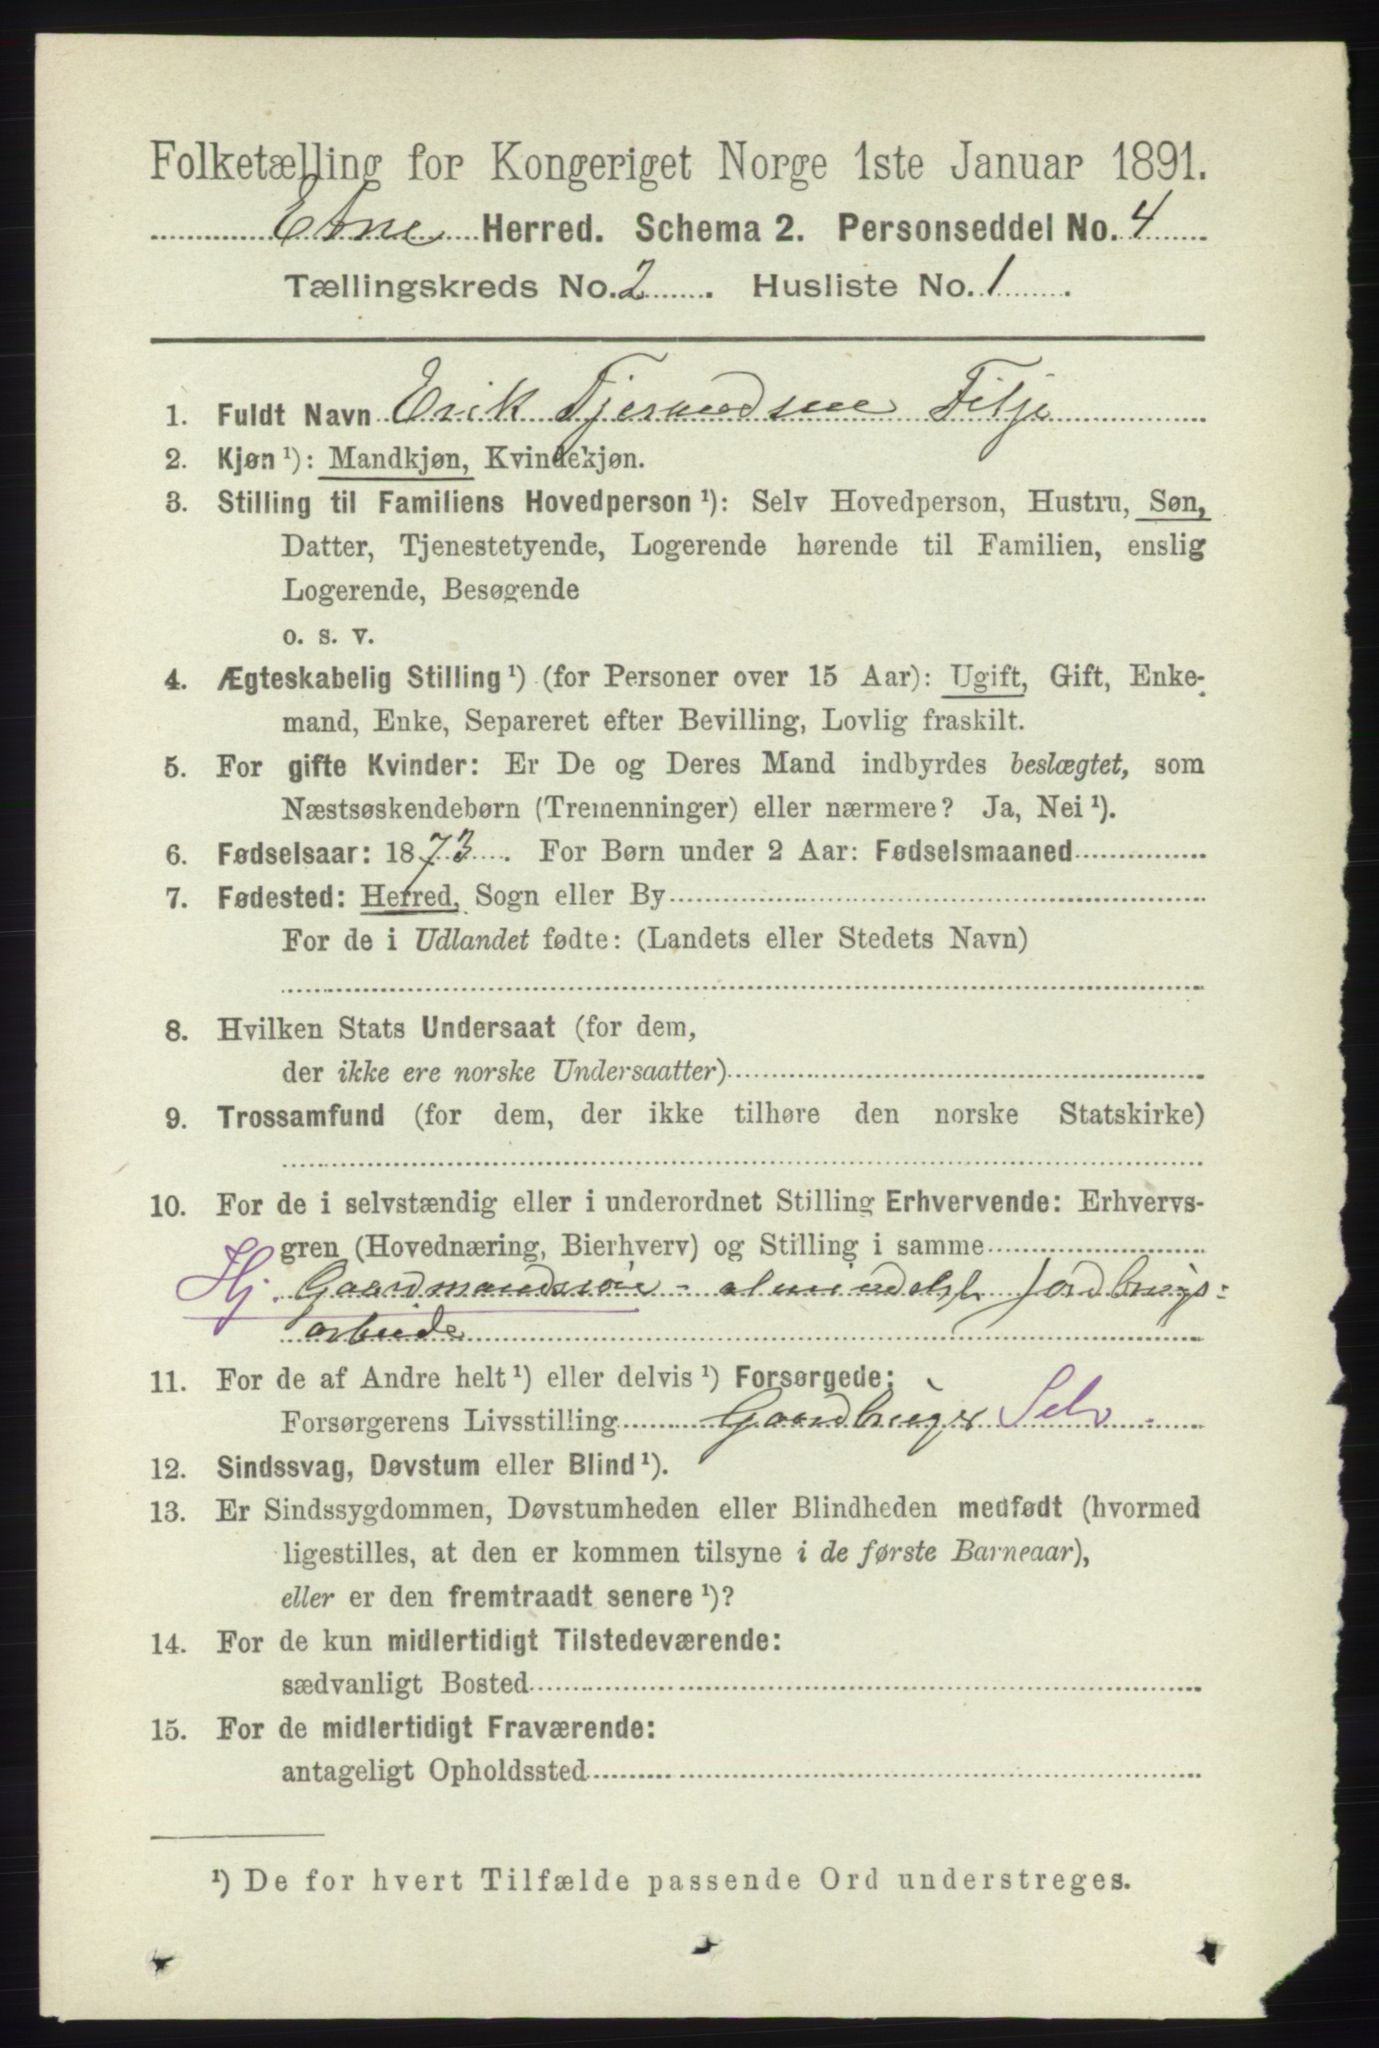 Folketælling for Kongeriget Norge 1ste Januar 1891.
Etne Herred. Schema 2. Personseddel No. 4
Tællingskreds No. 2. Husliste No. 1.
1. Fuldt Navn Erik Tjerandsen Fitje
2. Kjøn ¹): Mandkjøn, Kvindekjøn.
3. Stilling til Familiens Hovedperson ¹): Selv Hovedperson, Hustru, Søn,
Datter, Tjenestetyende, Logerende hørende til Familien, enslig
Logerende, Besøgende
o. s. v.
4. Ægteskabelig Stilling ¹) (for Personer over 15 Aar): Ugift, Gift, Enke-
mand, Enke, Separeret efter Bevilling, Lovlig fraskilt.
5. For gifte Kvinder: Er De og Deres Mand indbyrdes beslægtet, som
Næstsøskendebørn (Tremenninger) eller nærmere? Ja, Nei ¹).
6. Fødselsaar: 1873. For Børn under 2 Aar: Fødselsmaaned
7. Fødested: Herred, Sogn eller By
For de i Udlandet fødte: (Landets eller Stedets Navn)
8. Hvilken Stats Undersaat (for dem,
der ikke ere norske Undersaatter)
9. Trossamfund (for dem, der ikke tilhøre den norske Statskirke)
10. For de i selvstændig eller i underordnet Stilling Erhvervende: Erhvervs-
gren (Hovednæring, Bierhverv) og Stilling i samme
Hj. Gaardmandssøn - almindelig Jordbrugs-
arbeide
11. For de af Andre helt ¹) eller delvis ¹) Forsørgede:
Forsørgerens Livsstilling Gaardbruger Selv.
12. Sindssvag, Døvstum eller Blind ¹).
13. Er Sindssygdommen, Døvstumheden eller Blindheden medfødt (hvormed
ligestilles, at den er kommen tilsyne i de første Barneaar),
eller er den fremtraadt senere ¹)?
14. For de kun midlertidigt Tilstedeværende:
sædvanligt Bosted
15. For de midlertidigt Fraværende:
antageligt Opholdssted
¹) De for hvert Tilfælde passende Ord understreges.